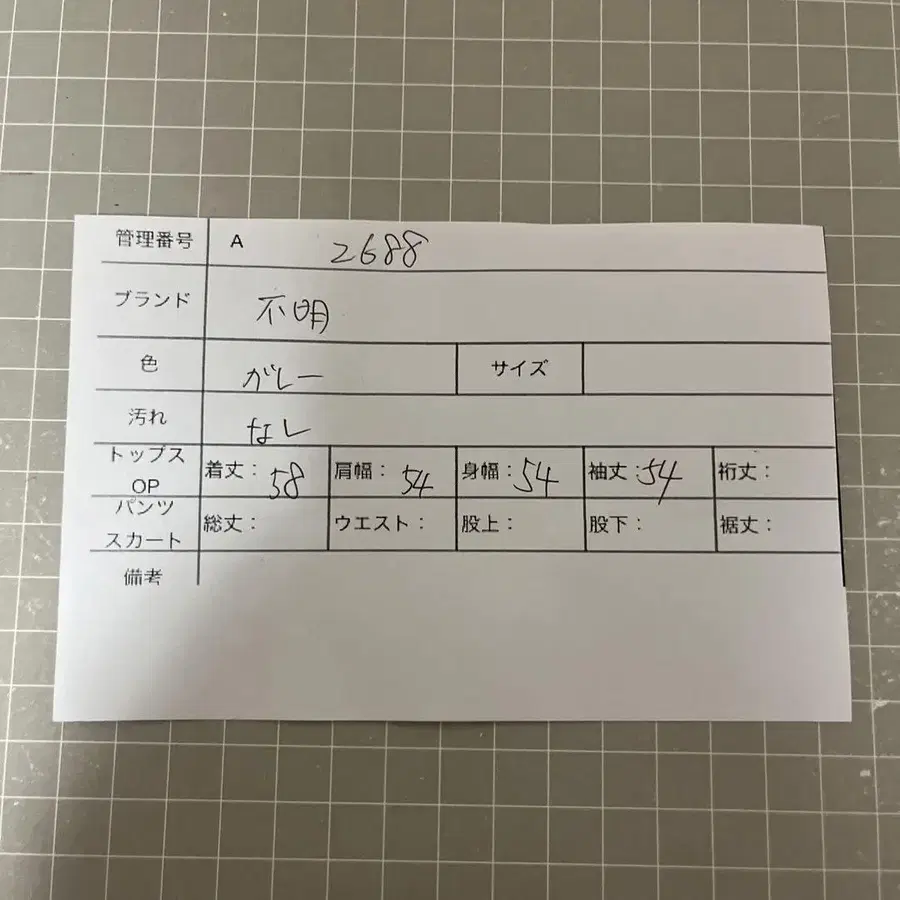 管理番号 A 2688
ブランド 不明
色 がレー サイズ
汚れ なし
トップス OP 着丈: 58 肩幅: 54 身幅: 54 袖丈: 54 裄丈:
パンツ スカート 総丈: ウエスト: 股上: 股下: 裾丈:
備考